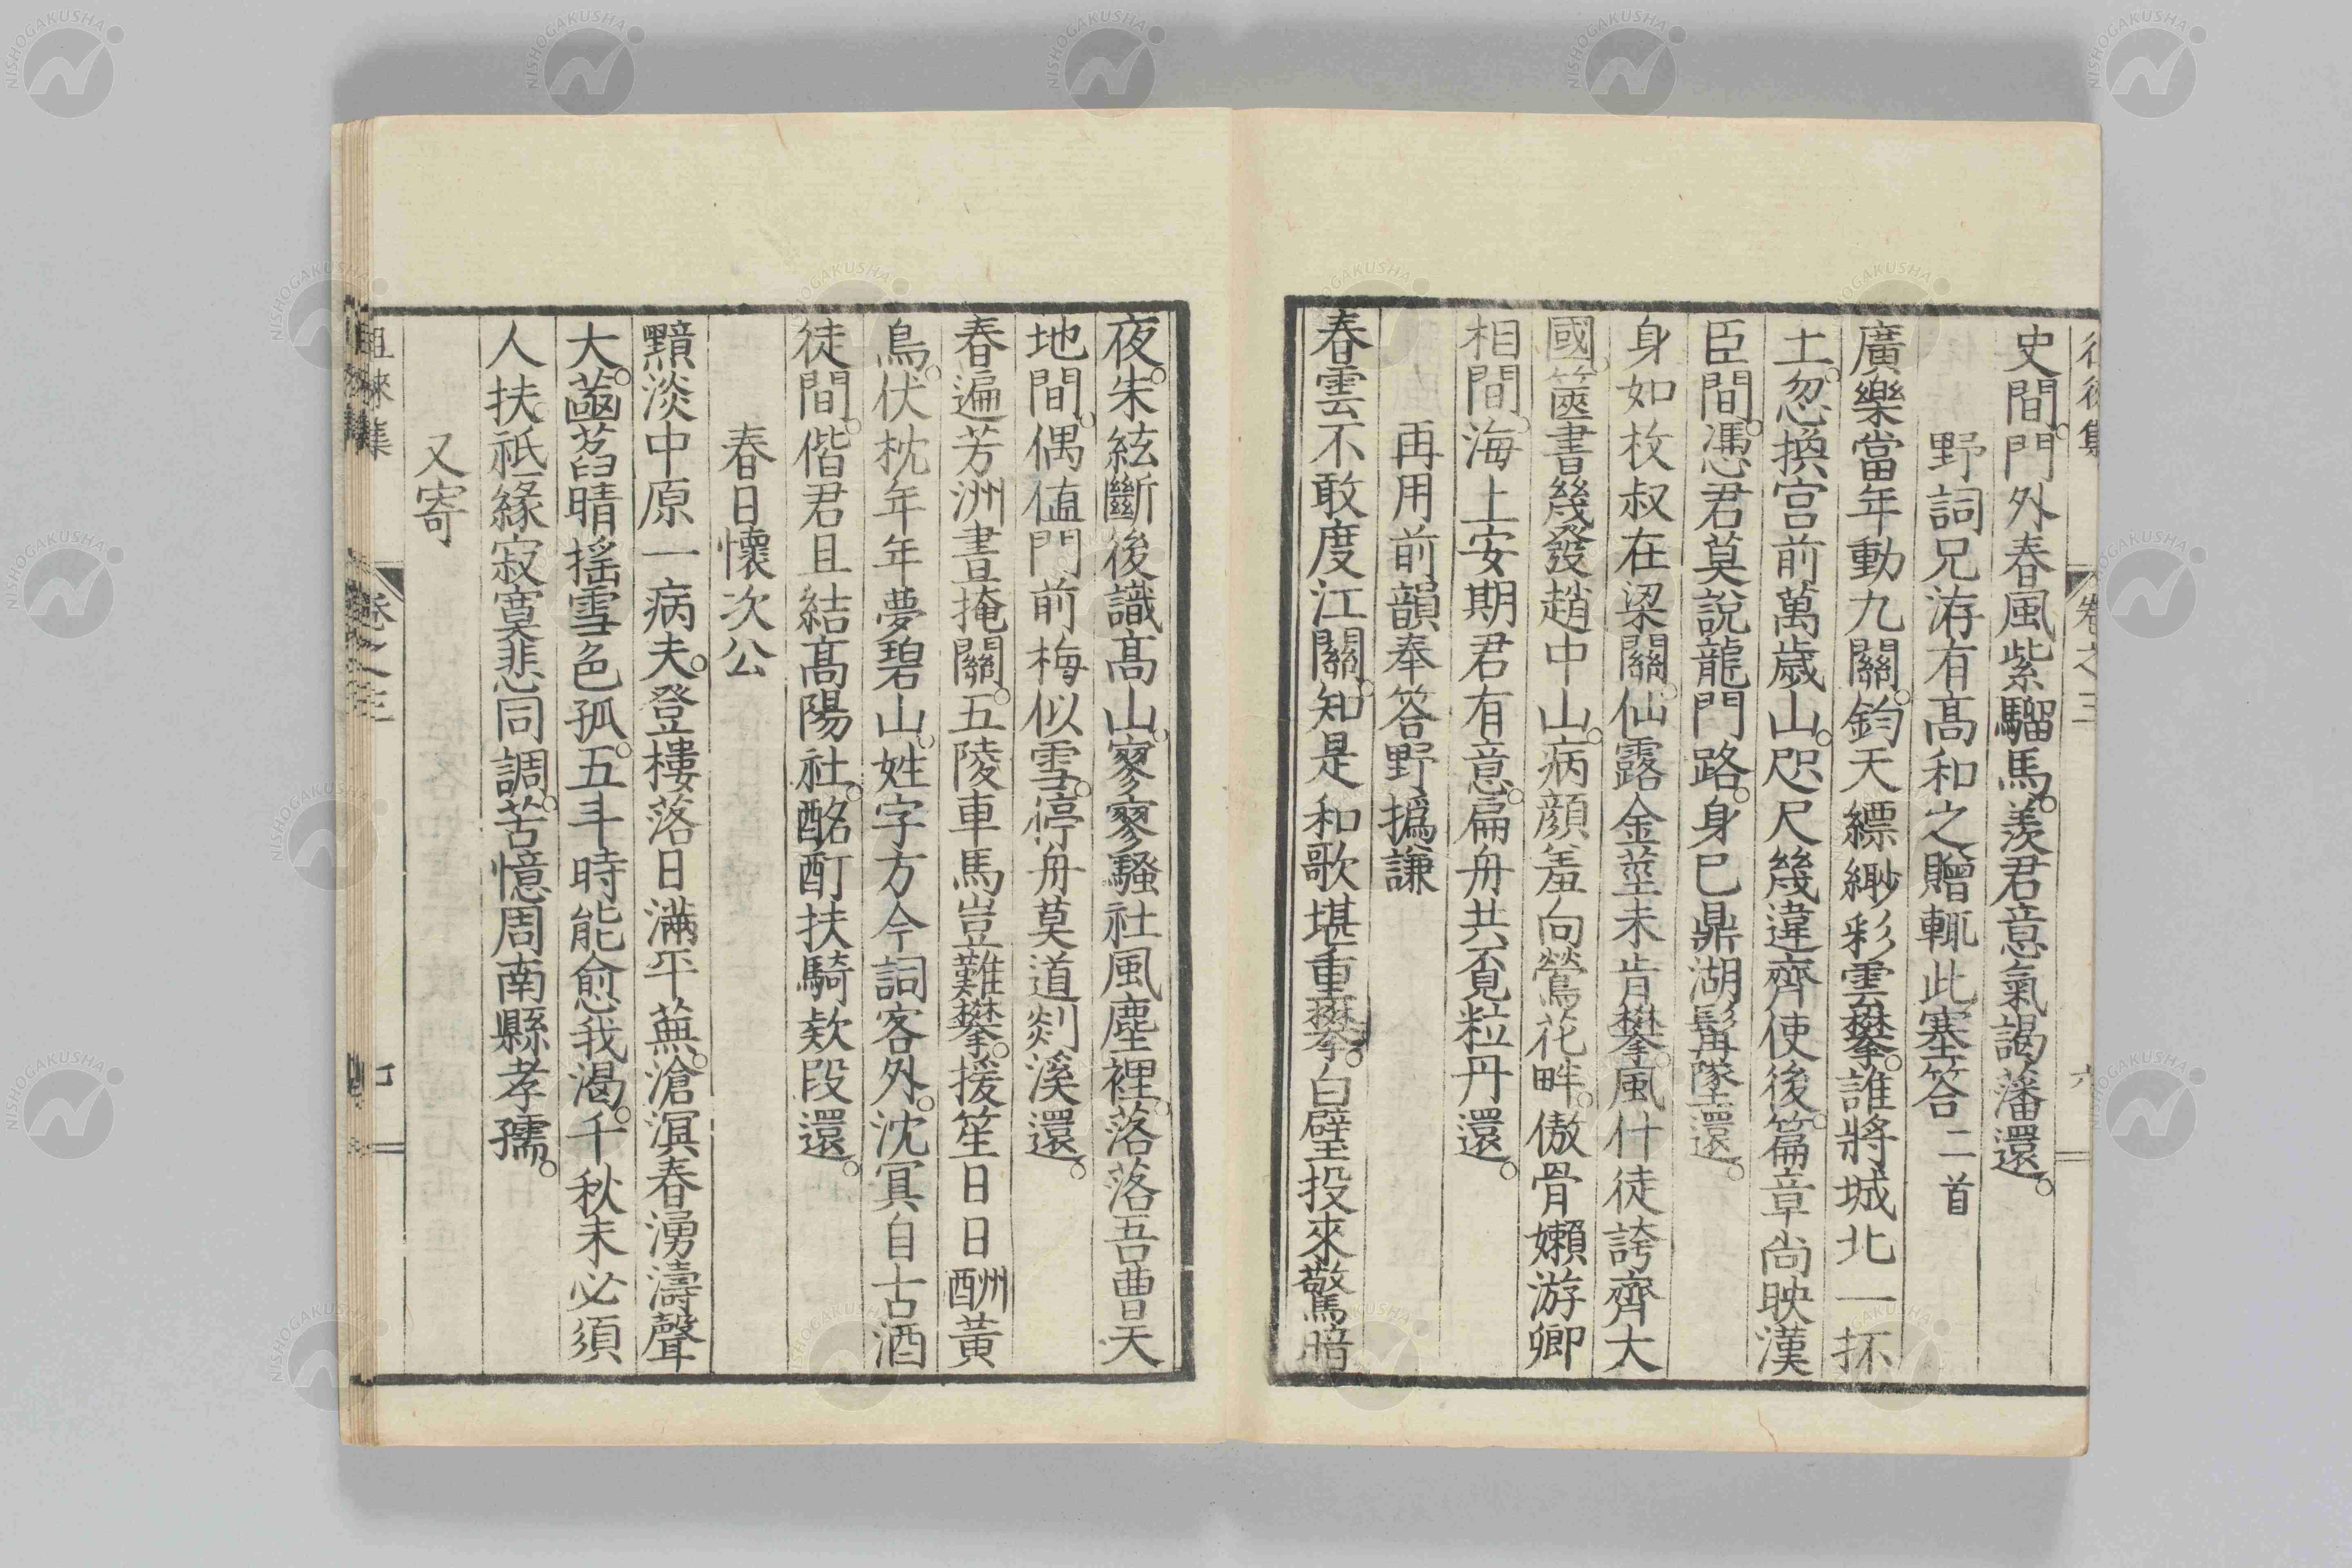 史間。門外春風紫騮馬。羨君意氣謁藩還。
野詞兄洊有高和之贈輒此塞答二首
廣樂當年動九關。鈞天縹緲彩雲攀。誰將城北一抔
土。忽換宮前萬歲山。咫尺幾違齊使後。篇章尚映漢
臣間。憑君莫說龍門路。身已鼎湖髯墜還。
身如枚叔在梁關。仙露金莖未肯攀。風什徒誇齊大
國。篋書幾發趙中山。病顏羞向鶯花畔。傲骨嬾游卿
相間。海上安期君有意。扁舟共覓粒丹還。
再用前韻奉答野撝謙
春雲不敢度江關。知是和歌堪重攀。白璧投來驚暗
夜。朱絃斷後識高山。寥寥騷社風塵裡。落落吾曹天
地間。偶値門前梅似雪。停舟莫道剡溪還。
春遍芳洲晝掩關。五陵車馬豈難攀。援笙日日酬黃
鳥。伏枕年年夢碧山。姓字方今詞客外。沈冥自古酒
徒間。偕君且結高陽社。酩酊扶騎欵段還。
春日懷次公
黯淡中原一病夫。登樓落日滿平蕪。滄溟春湧濤聲
大。菡萏晴搖雪色孤。五斗時能愈我渴。千秋未必須
人扶。祇緣寂寞悲同調。苦憶周南縣孝孺。
又寄
徂徠集
卷之三
七
卷之三
六
NISHOGAKUSHA